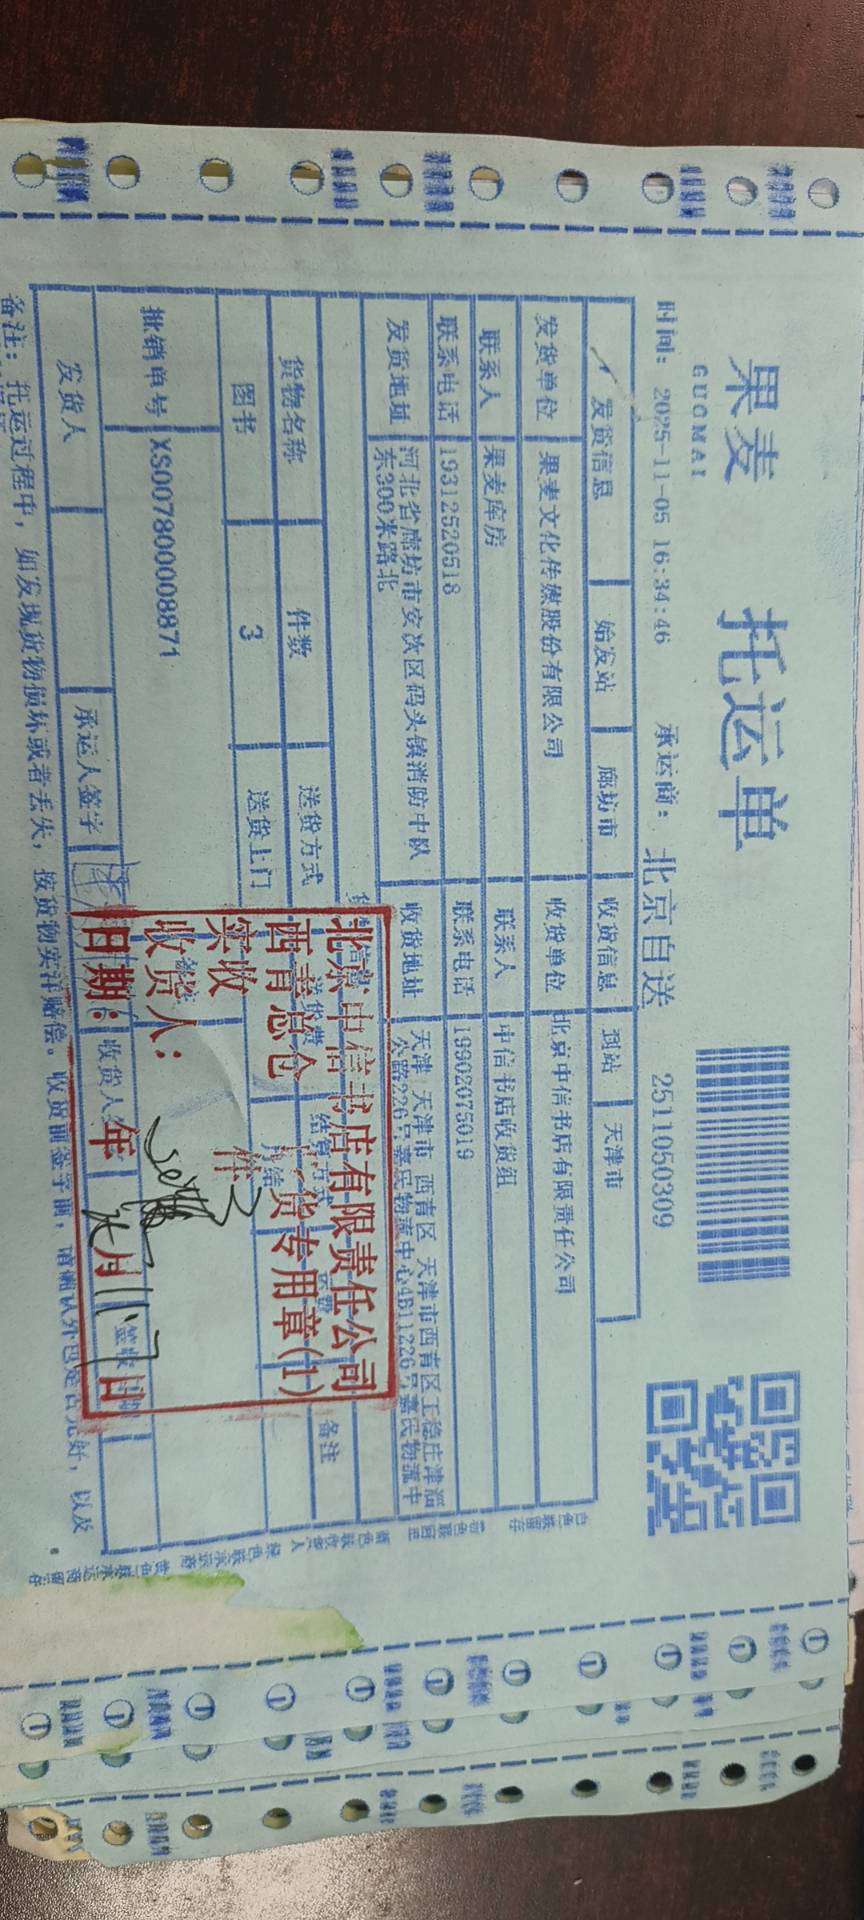 果麦 托运单
GUOMAI
时间: 2025-11-05 16:34:46 承运商: 北京自送 2511050309
发货信息 始发站 廊坊市 收货信息 到站 天津市
发货单位 果麦文化传媒股份有限公司 收货单位 北京中信书店有限责任公司
联系人 果麦库房 联系人 中信书店收货组
联系电话 19312520518 联系电话 19902075019
发货地址 河北省廊坊市安次区码头镇消防中队 收货地址 天津 天津市 西青区 天津市西青区王稳庄津淄
东300米路北 公路226号嘉民物流中心4B11226号嘉民物流中
货物名称 件数 送货方式 送货费 结算方式 备注
图书 3 送货上门 月结
批销单号 XS007800008871
发货人 承运人签字 收货人 签收
备注: 托运过程中, 如发现货物损坏或者丢失, 按货物实洋赔偿。收货前签字前, 请确认外包是否完好, 以及
北京中信书店有限责任公司
西青总仓 收货专用章(1)
实收 件
收货人:
日期: 年 月 日